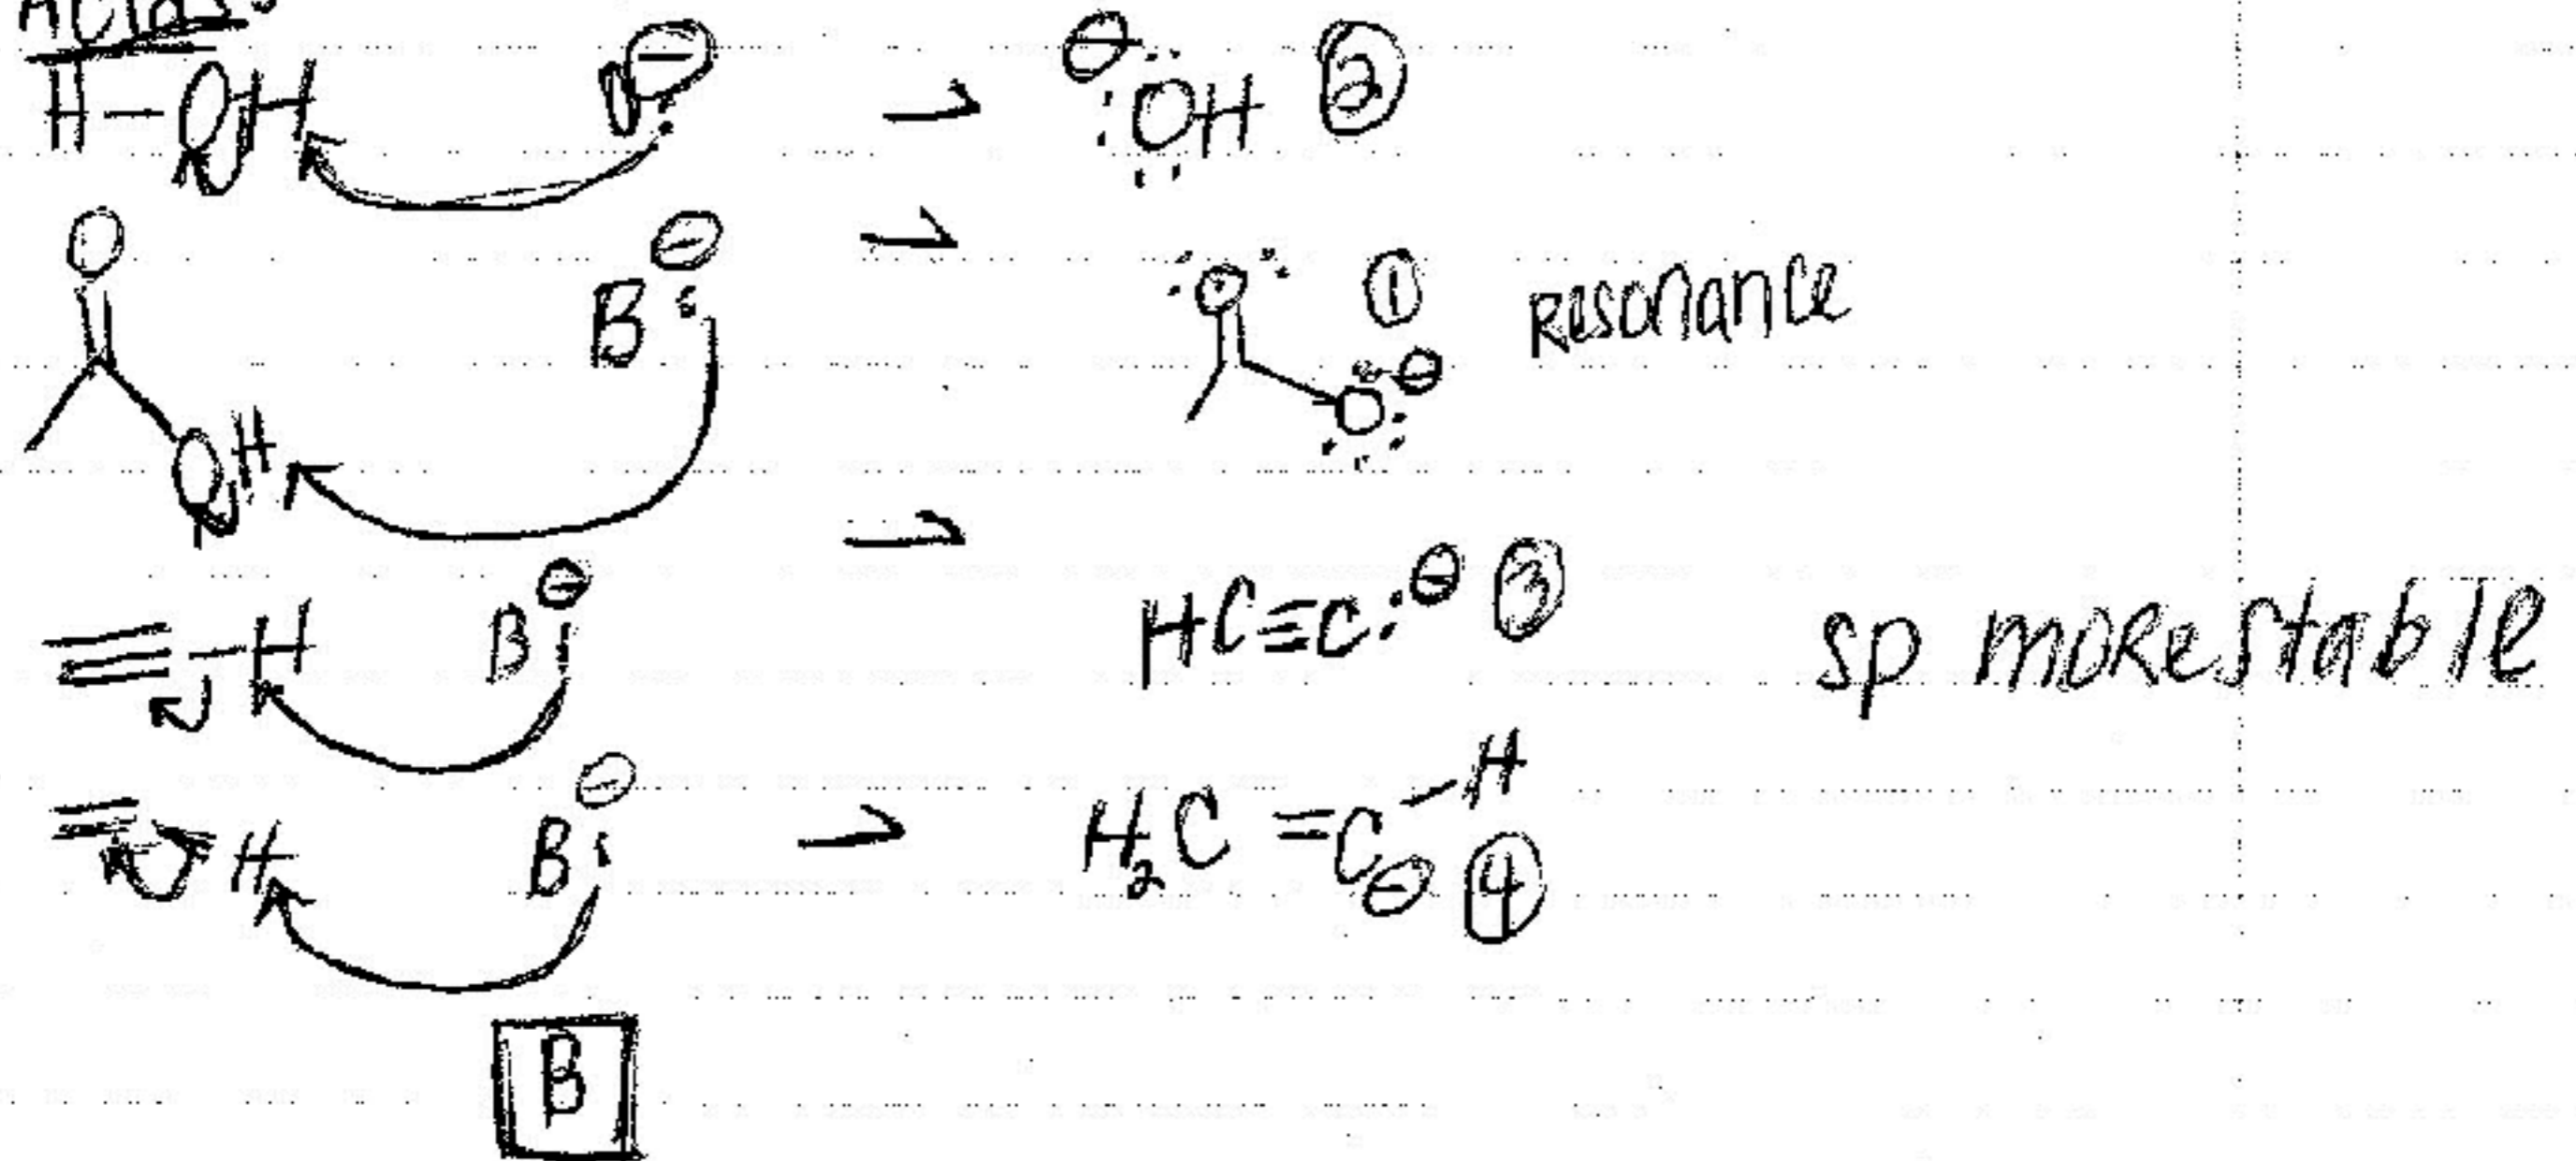 Acids:
H-OH ⊖ : → ⊖ :OH ②
O B:⊖ → O ① Resonance
OH O ⊖
≡-H B:⊖ → HC≡C:⊖ ③ sp more stable
H B:⊖ → H₂C=C-H ⊖ ④
B